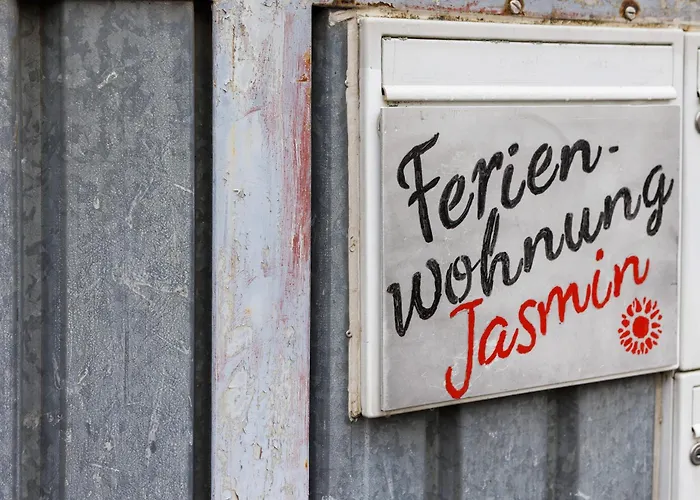 Ferien-
wohnung
Jasmin